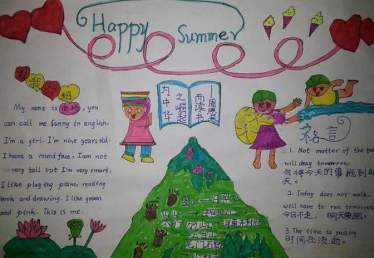 Happy Summer
My name is
you
can call me Sunny in english.
I'm a girl. I'm nine years old.
I have a round face. I am not
very tall but I'm very smart.
I like playing piano, reading
book and drawing. I like green
and pink. This is me.
为中华
之崛起
而读书
周恩来
格言
1. Not matter of the tod
will drag tomorrow.
勿将今天的事拖到明
天。
2. Today does not walk,
will have to run tomorrow
今日不走，明天要跑。
3. The time is passing
时间在流逝。